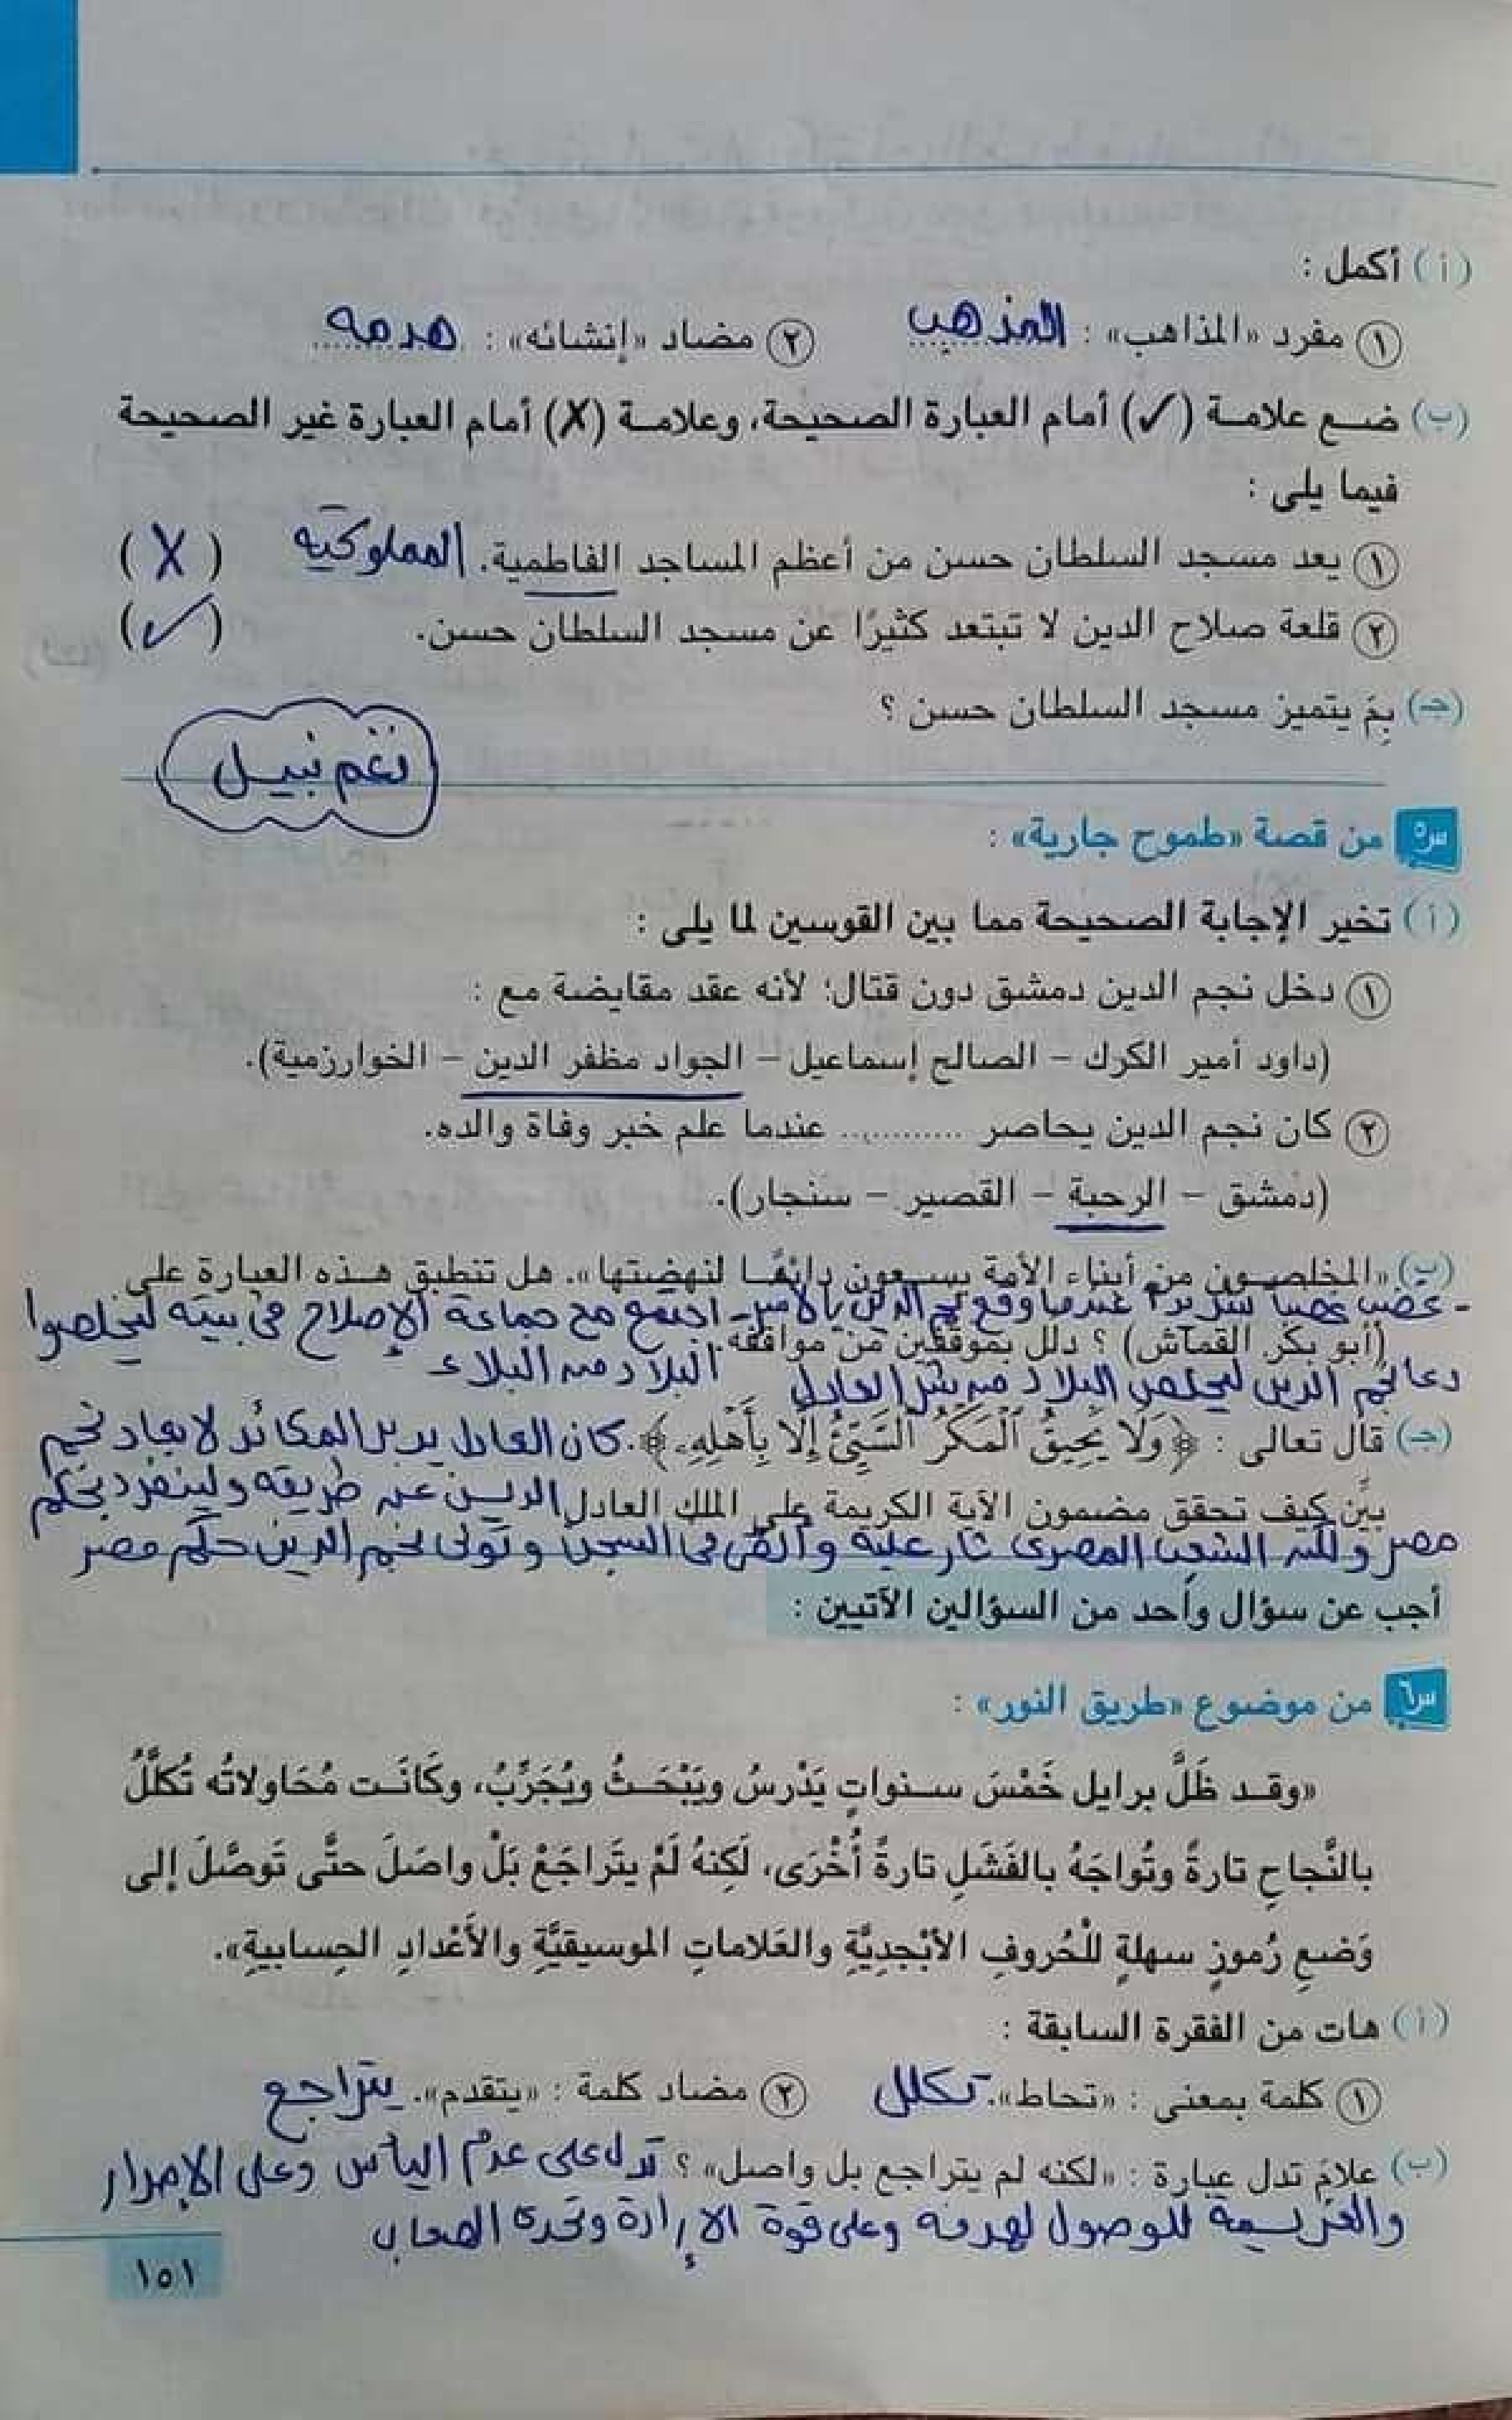 (أ) أكمل :
① مفرد «المذاهب» : المذهب ② مضاد «إنشائه» : هدمه
(ب) ضع علامة (✓) أمام العبارة الصحيحة، وعلامة (X) أمام العبارة غير الصحيحة
فيما يلى :
① يعد مسجد السلطان حسن من أعظم المساجد الفاطمية. المملوكية (X)
② قلعة صلاح الدين لا تبتعد كثيرًا عن مسجد السلطان حسن. (✓)
(جـ) بِمَ يتميز مسجد السلطان حسن ؟
نغم نبيل
س٥ من قصة «طموح جارية» :
(أ) تخير الإجابة الصحيحة مما بين القوسين لما يلى :
① دخل نجم الدين دمشق دون قتال؛ لأنه عقد مقايضة مع :
(داود أمير الكرك – الصالح إسماعيل – الجواد مظفر الدين – الخوارزمية).
② كان نجم الدين يحاصر ............ عندما علم خبر وفاة والده.
(دمشق – الرحبة – القصير – سنجار).
(ب) «المخلصون من أبناء الأمة يسعون دائمًا لنهضتها». هل تنطبق هذه العبارة على
- غضب غضبا شديدا عندما وقع نجم الدين بالأسر - اجتمع مع جماعة الإصلاح فى بيته ليخلصوا
(أبو بكر القماش) ؟ دلل بموقفين من مواقفه. البلاد من البلاء
دعا نجم الدين ليخلص البلاد من شر العادل
(جـ) قال تعالى : ﴿وَلَا يَحِيقُ ٱلْمَكْرُ ٱلسَّيِّئُ إِلَّا بِأَهْلِهِۦ﴾. كان العادل يدبر المكائد لابعاد نجم
بيِّن كيف تحقق مضمون الآية الكريمة على الملك العادل الدين عن طريقه ولينفرد بحكم
مصر ولكن الشعب المصرى ثار عليه وألقى فى السجن وتولى نجم الدين حكم مصر
أجب عن سؤال واحد من السؤالين الآتيين :
س٦ من موضوع «طريق النور» :
«وقد ظَلَّ برايل خَمْسَ سنواتٍ يَدْرسُ ويَبْحَثُ ويُجَرِّبُ، وكَانَت مُحَاولاتُه تُكلَّلُ
بالنَّجاحِ تارةً وتُواجَهُ بالفَشَلِ تارةً أُخْرَى، لَكِنهُ لَمْ يتَراجَعْ بَلْ واصَلَ حتَّى تَوصَّلَ إلى
وَضعِ رُموزٍ سهلةٍ للْحُروفِ الأَبْجدِيَّةِ والعَلاماتِ الموسيقيَّةِ والأَعْدادِ الحِسابيةِ».
(أ) هات من الفقرة السابقة :
① كلمة بمعنى : «تحاط». تكلل ② مضاد كلمة : «يتقدم». يتراجع
(ب) علامَ تدل عبارة : «لكنه لم يتراجع بل واصل» ؟ تدل على عدم اليأس وعلى الإصرار
والعزيمة للوصول لهدفه وعلى قوة الإرادة وتحدى الصعاب
١٥١